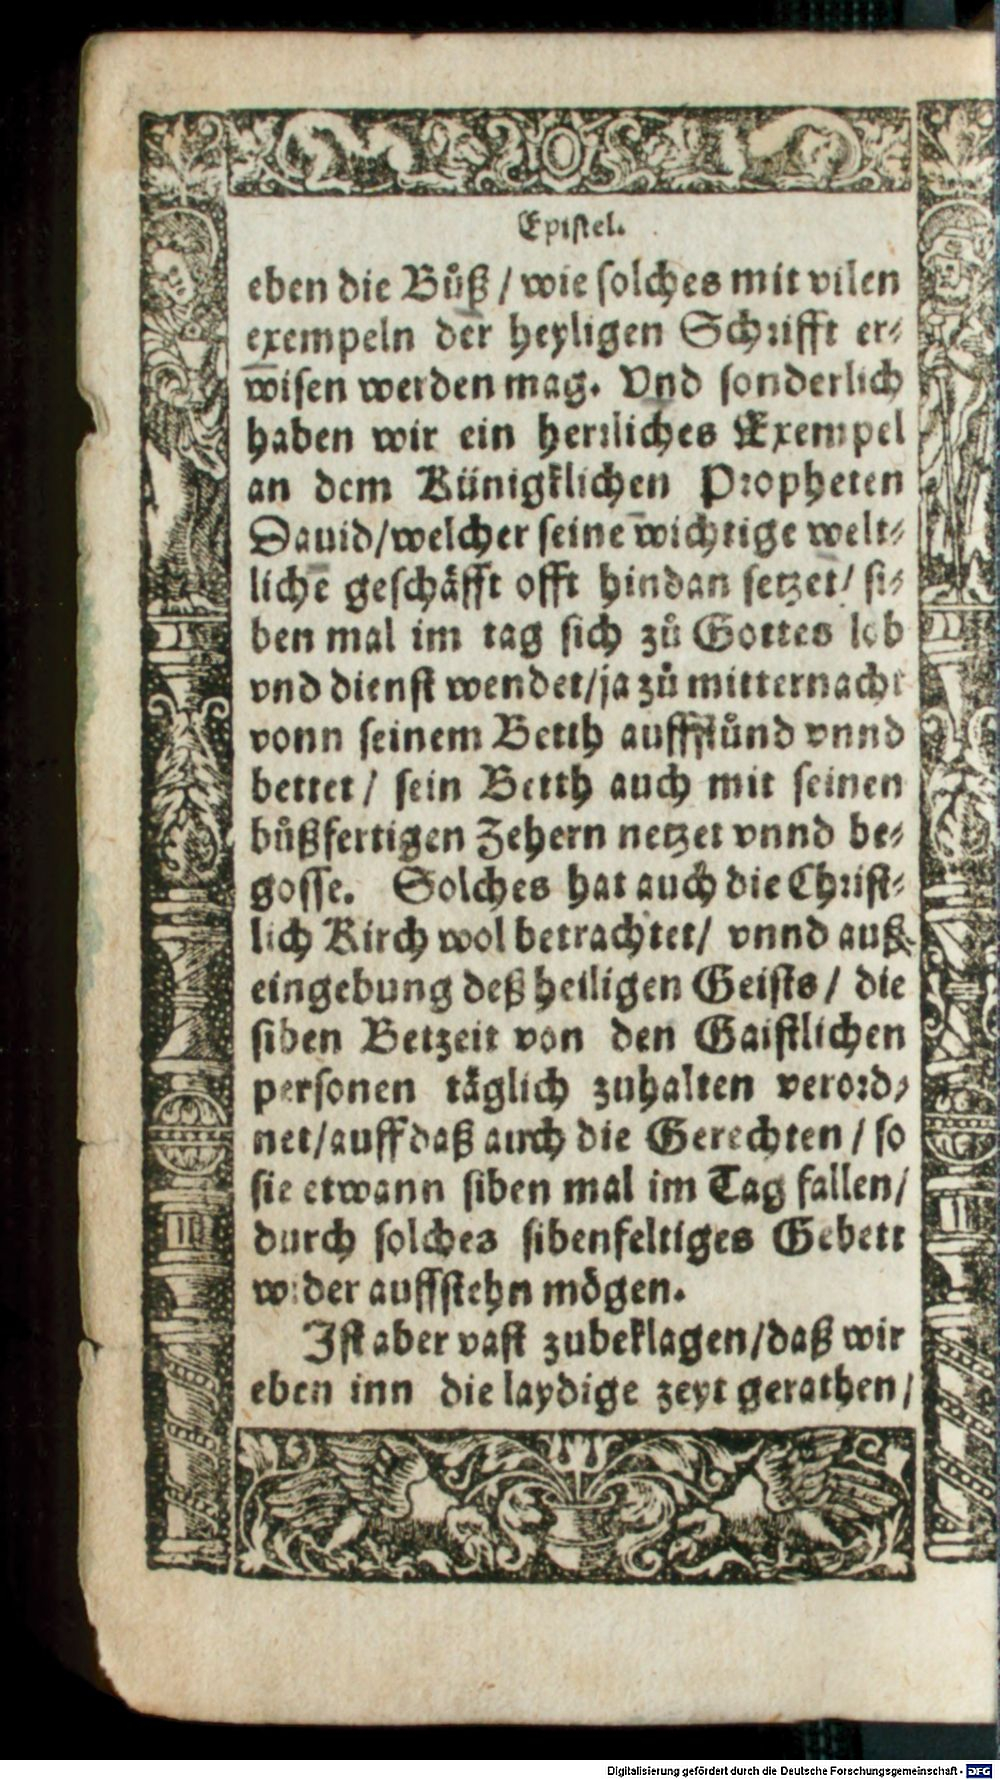 Epistel.
eben die Bůß / wie solches mit vilen
exempeln der heyligen Schrifft er⸗
wisen werden mag. Vnd sonderlich
haben wir ein herrliches Exempel
an dem Künigklichen Propheten
Dauid/welcher seine wichtige welt⸗
liche geschäfft offt hindan setzet/ si⸗
ben mal im tag sich zů Gottes lob
vnd dienst wendet/ja zů mitternacht
vonn seinem Betth auffstůnd vnnd
bettet / sein Betth auch mit seinen
bůßfertigen Zehern netzet vnnd be⸗
gosse. Solches hat auch die Christ⸗
lich Kirch wol betrachtet/ vnnd auß
eingebung deß heiligen Geists / die
siben Betzeit von den Gaistlichen
personen täglich zuhalten verord⸗
net/auff daß auch die Gerechten / so
sie etwann siben mal im Tag fallen/
durch solches sibenfeltiges Gebett
wider auffstehn mögen.
Ist aber vast zubeklagen/daß wir
eben inn die laydige zeyt gerathen/
Digitalisierung gefördert durch die Deutsche Forschungsgemeinschaft - DFG